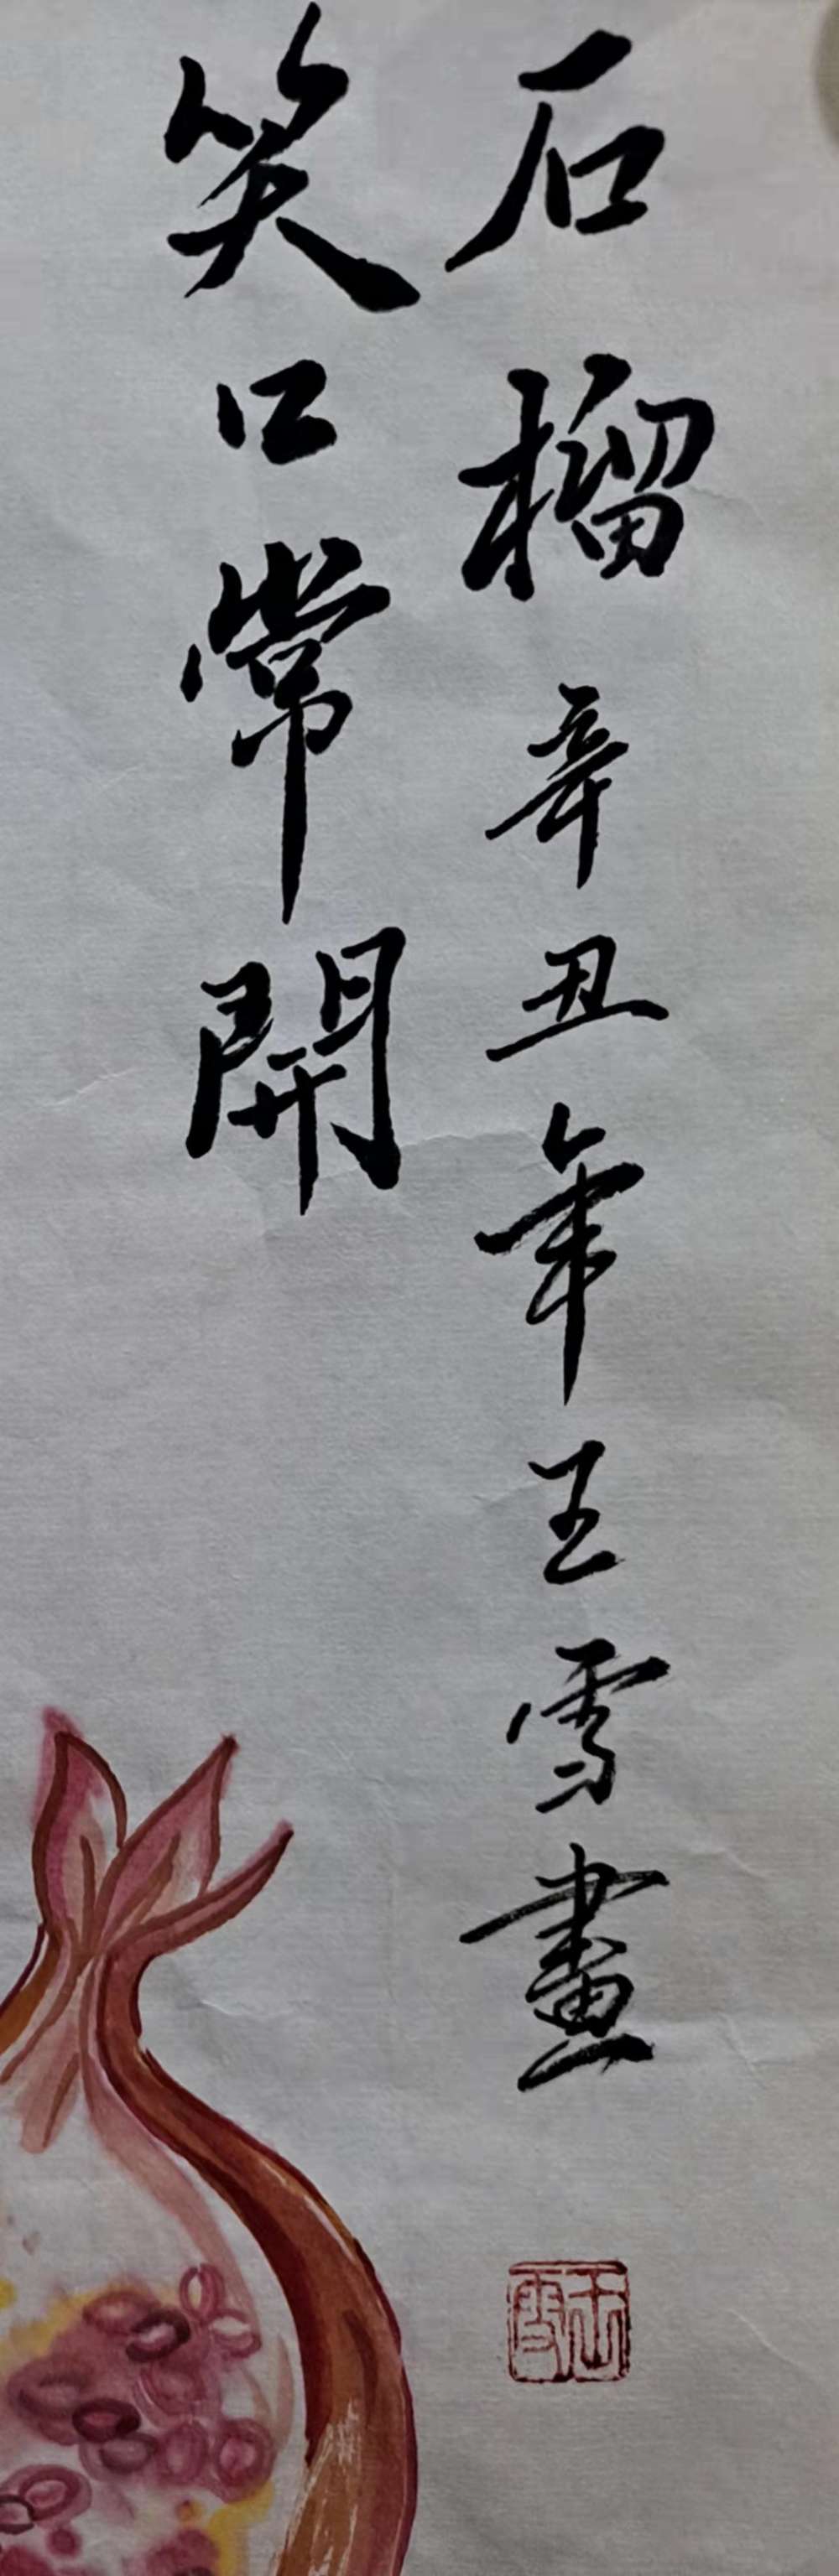 石榴 辛丑年王雪畫
笑口常開
王雪